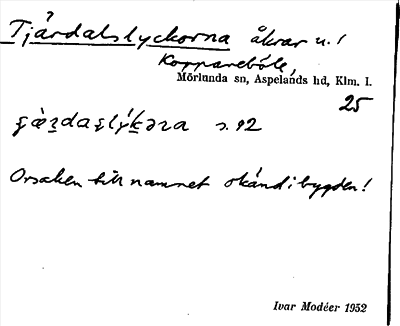 Tjärdalslyckorna åkrar u. /
Kopparebõle,
Mörlunda sn, Aspelands hd, Klm. l.
25
s. 92
Orsaken till namnet okänd i bygden!
Ivar Modéer 1952